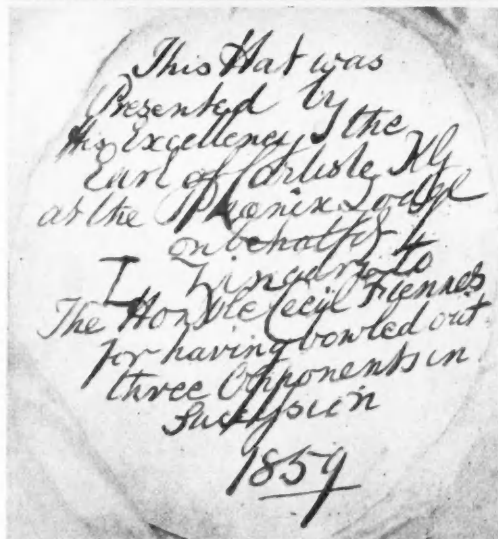 This Hat was
Presented by
His Excellency the
Earl of Carlisle KG
at the Phœnix Lodge
on behalf of
I Zingari to
The Honble Cecil Fiennes
for having bowled out
three Opponents in
Succession
1859